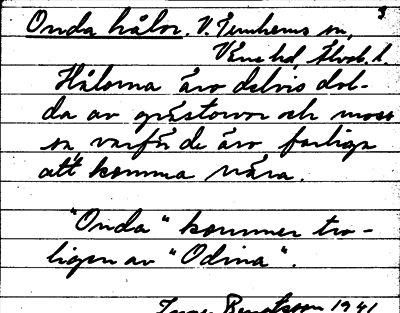 3
Onda hålor. V. Tunhems sn,
Väne hd, Älvsb. l.
Hålorna äro delvis dol-
da av grästorvor och moss
sa, varför de äro farliga
att komma nära.
"Onda" kommer tro-
ligen av "Odina".
Bengtsson 1941